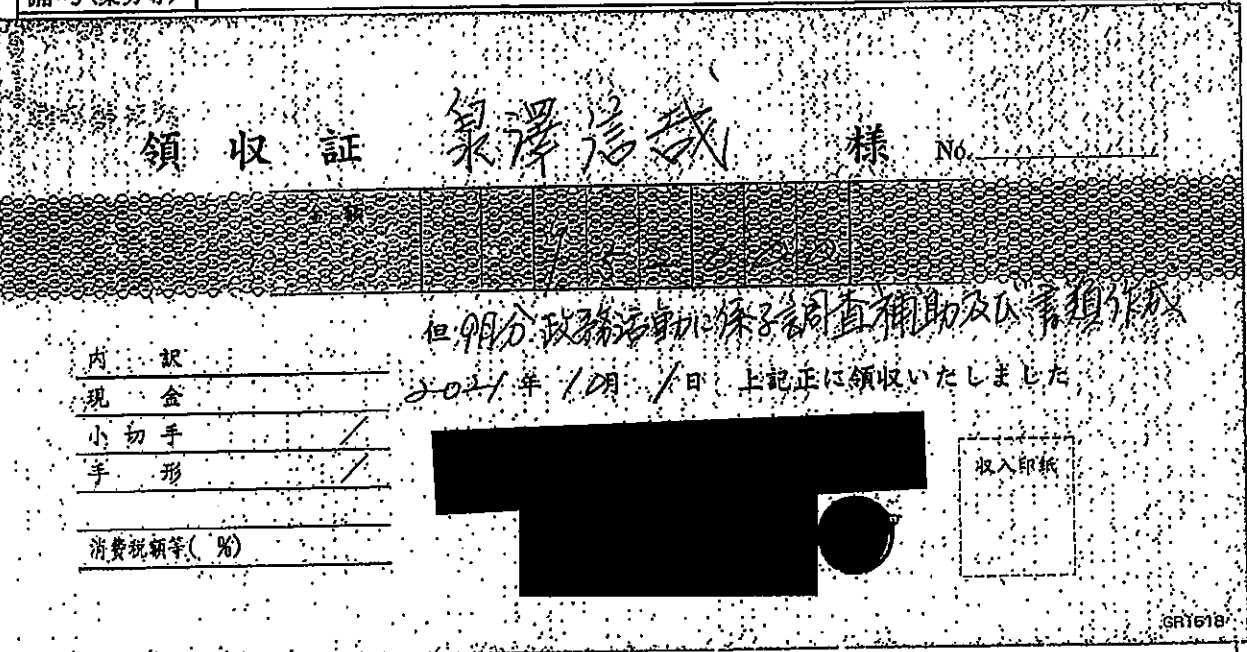 領収証 泉澤信哉 様 No.
金額
但 9月分 政務活動に係る調査補助及び書類作成
2021年10月1日 上記正に領収いたしました
内訳
現金
小切手 /
手形 /
消費税額等( %)
収入印紙
GR1618